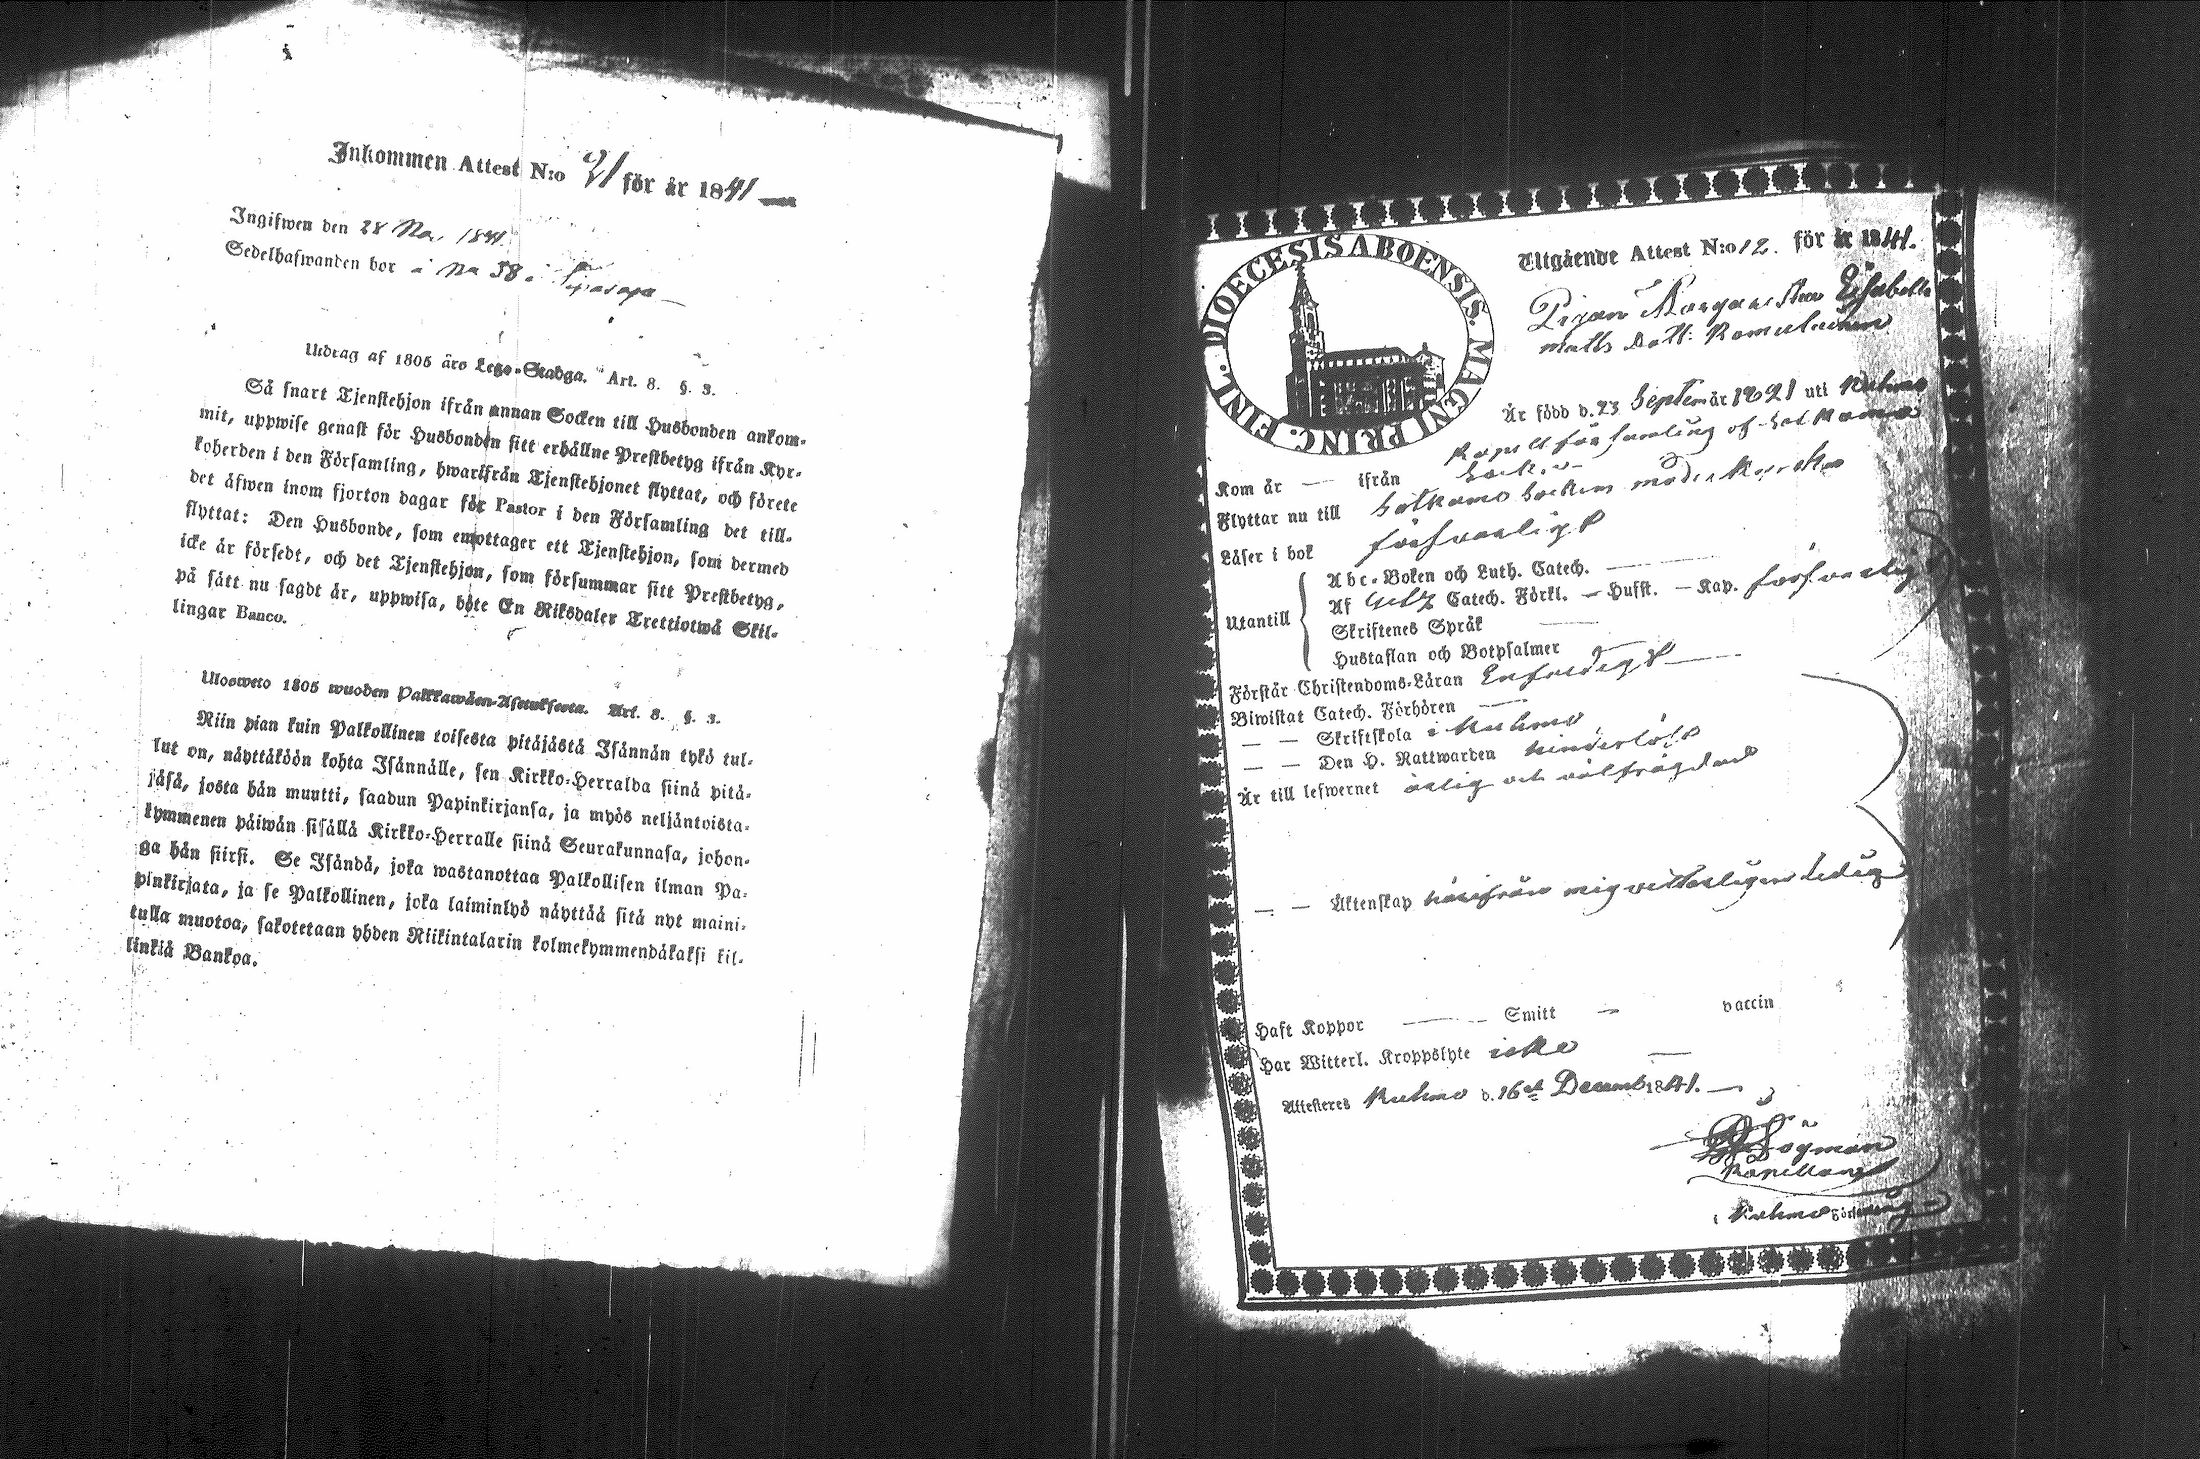 Inkommen Attest N:o 21 för år 1841
Ingifwen den 28 1841.
Sedelhafwanden bor i No 38 i
Utdrag af 1805 års Lego-Stadga. Art. 8. §. 3.
Så snart Tjenstehjon ifrån annan Socken till Husbonden ankom-
mit, uppwise genast för Husbonden sitt erhållne Prestbetyg ifrån Kyr-
koherden i den Församling, hwarifrån Tjenstehjonet flyttat, och förete
det äfwen inom fjorton dagar för Pastor i den Församling det till-
flyttat: Den Husbonde, som emottager ett Tjenstehjon, som dermed
icke är försedt, och det Tjenstehjon, som försummar sitt Prestbetyg,
på sätt nu sagdt är, uppwisa, böte En Riksdaler Trettiotwå Skil-
lingar Banco.
Ulosweto 1805 wuoden Palkkawäen-Asetuksesta. Art. 8. §. 3.
Niin pian kuin Palkollinen toisesta pitäjästä Isännän tykö tul-
lut on, näyttäköön kohta Isännälle, sen Kirkko-Herralda siinä pitä-
jäsä, josta hän muutti, saadun Papinkirjansa, ja myös neljäntoista-
kymmenen päiwän sisällä Kirkko-Herralle siinä Seurakunnasa, johon-
ga hän siirsi. Se Isändä, joka wastanottaa Palkollisen ilman Pa-
pinkirjata, ja se Palkollinen, joka laiminlyö näyttää sitä nyt maini-
tulla muotoa, sakotetaan yhden Riikintalarin kolmekymmendäkaksi kil-
linkiä Bankoa.
DIOECESIS ABOENSIS. MAGNI PRINC. FINL.
Utgående Attest N:o 12. för år 1841.
Pigan Margaretha Elisabetta
Matts Dott: Romulainen
Är född d. 23 Septem år 1821 uti Kuhmo
Kapell församling of Sotkamo
Kom år — ifrån Socken
Flyttar nu till Sotkamo Sockens moderkyrka
Läser i bok försvarligt
Utantill
Abc-Boken och Luth. Catech. —
Af Catech. Förkl. — Hufst. — Kap. försvarligt
Skriftenes Språk —
Hustaflan och Botpsalmer
Förstår Christendoms-Läran Enfaldigt —
Biwistat Catech. Förhören —
— — Skriftskola i Kuhmo
— — Den H. Nattwarden hinderlöst
Är till lefwernet ärlig och välfrägdad
— — Äktenskap härifrån mig vetterligen ledig
Haft Koppor — Smitt — vaccin
Har Witterl. Kroppslyte icke —
Attesteres Kuhmo d. 16de Decemb 1841. —
Högman
Kapellan
i Kuhmo Församling